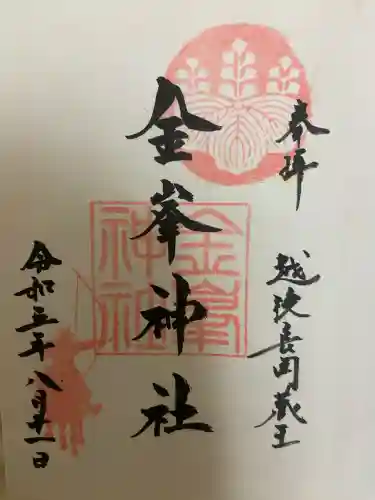 参拝
越後長岡蔵王
金峯神社
金峯神社
令和三年八月十一日